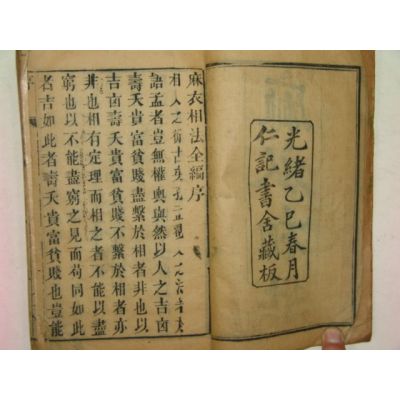 光緒乙巳春月
仁記書舍藏板
麻衣相法全編序
相人之術古
語孟者豈無權輿與然以人之吉凶
壽夭貴富貧賤盡繫於相者非也以
吉凶壽夭貴富貧賤不繫於相者亦
非也相有定理而相之者不能以盡
窮也以不能盡窮之見而苟同如此
者吉如此者壽夭貴富貧賤也豈能